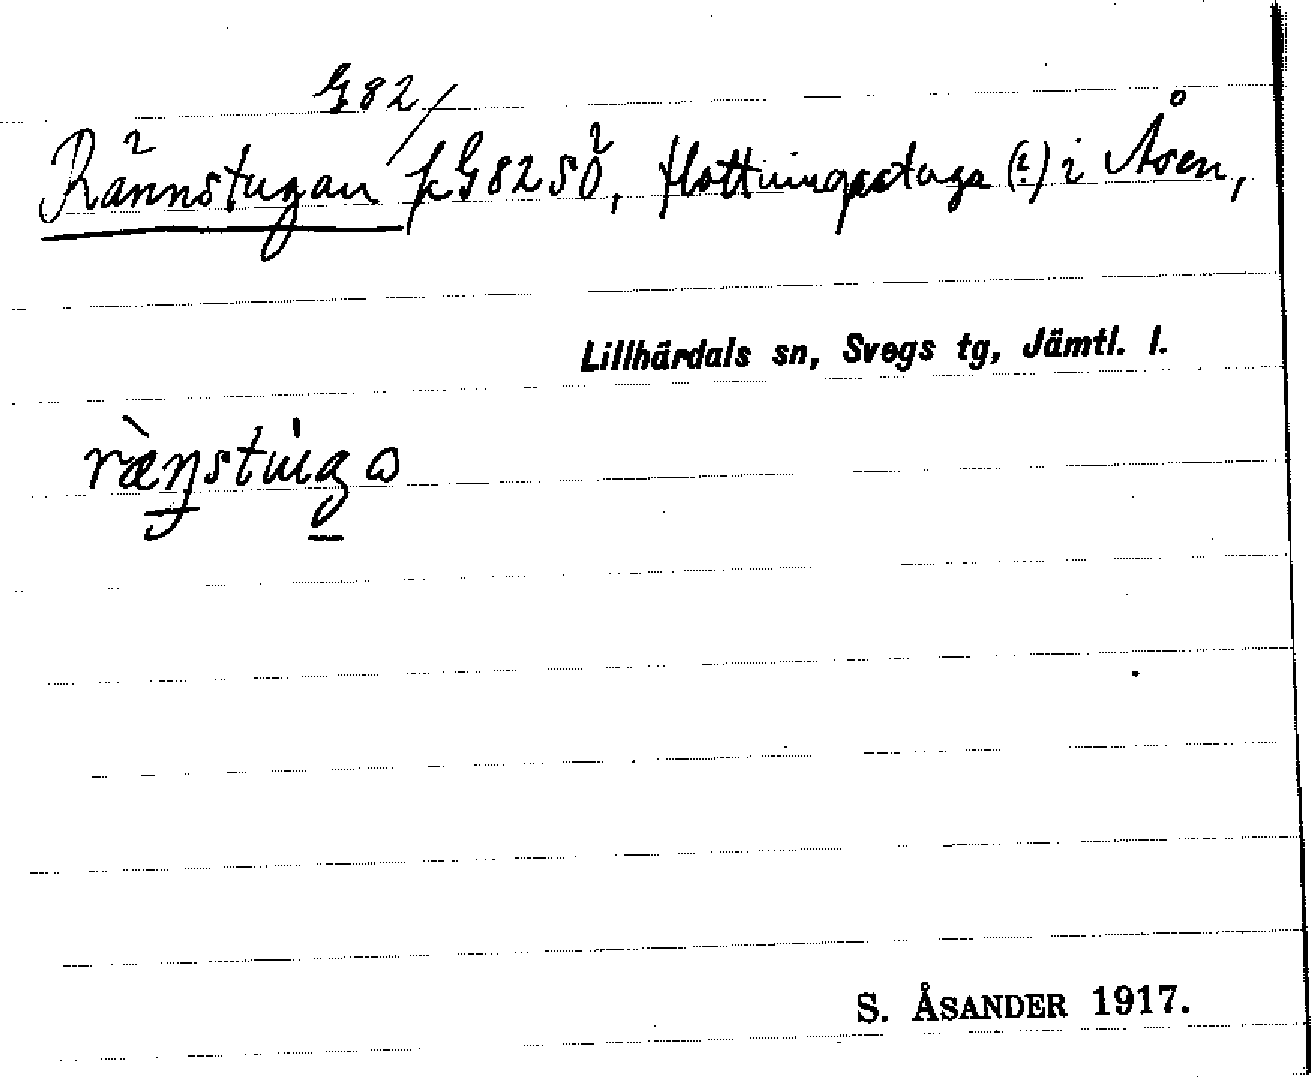 G82/
Rännstugan fG82 SÖ, flottningsstuga (?) i Åsen,
Lillhärdals sn, Svegs tg, Jämtl. l.
ræŋstuga
S. ÅSANDER 1917.